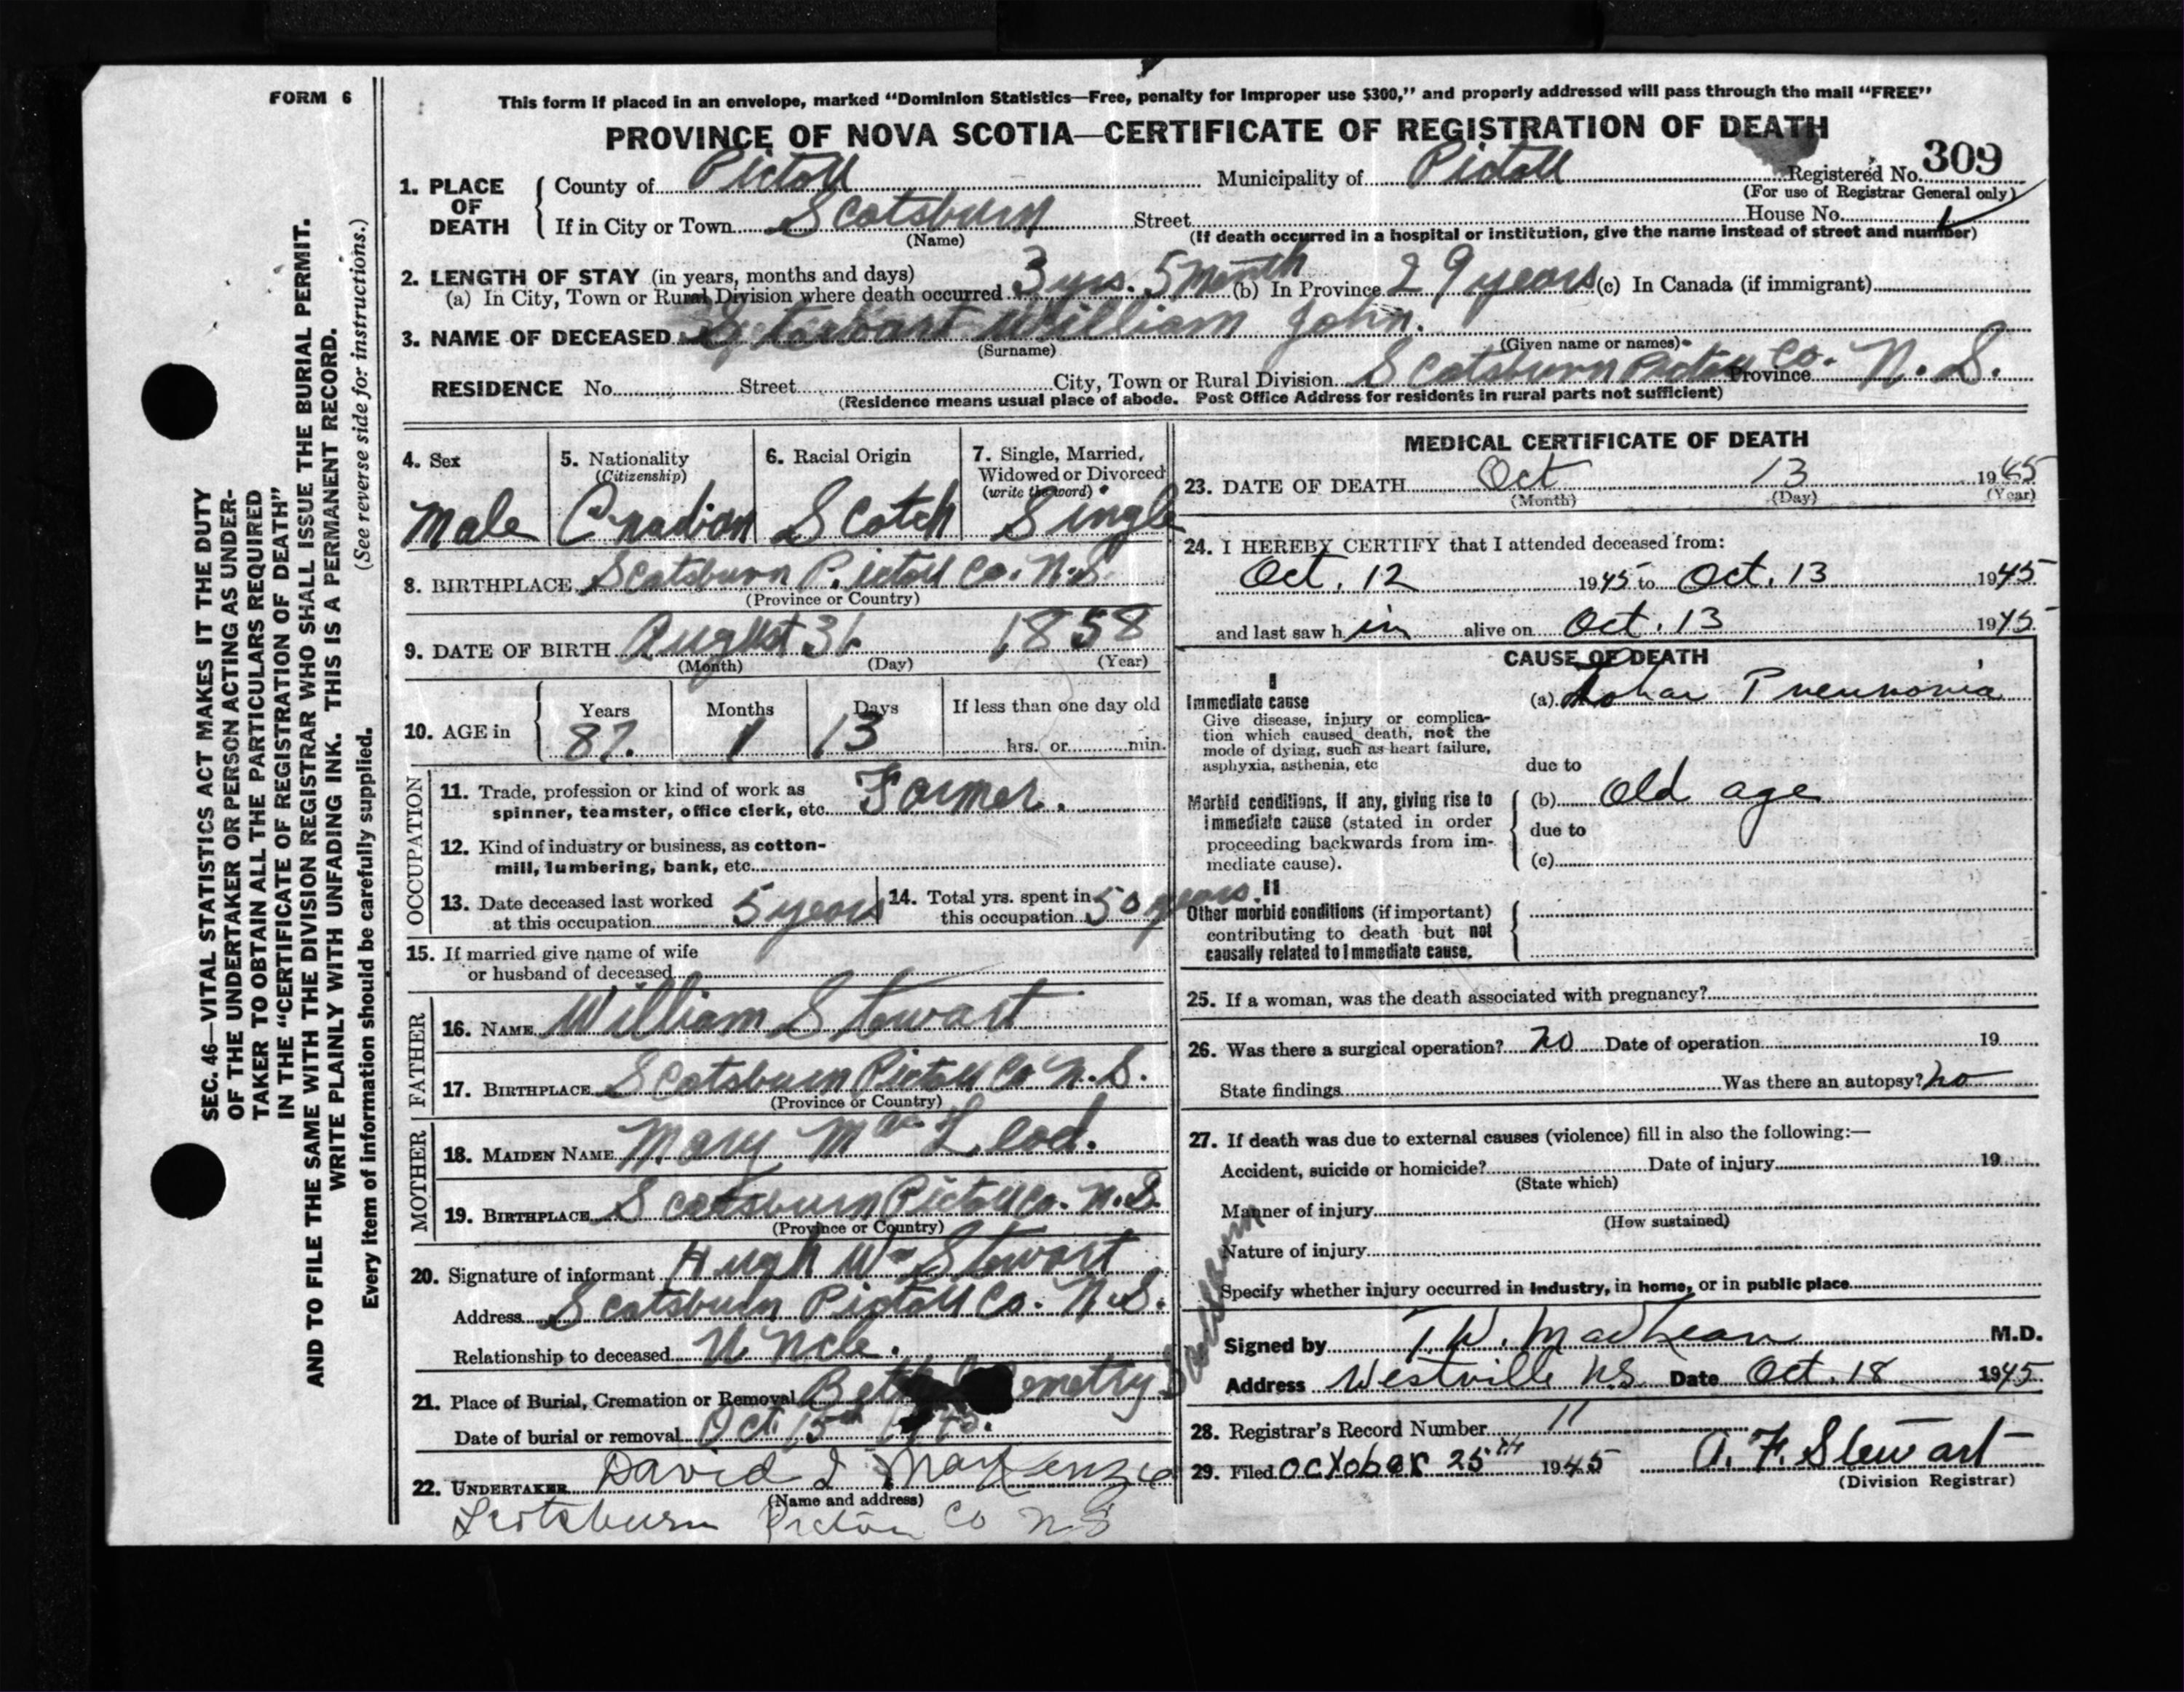 FORM 6
This form if placed in an envelope, marked "Dominion Statistics—Free, penalty for improper use $300," and properly addressed will pass through the mail "FREE"
PROVINCE OF NOVA SCOTIA—CERTIFICATE OF REGISTRATION OF DEATH
Registered No. 309
(For use of Registrar General only)
1. PLACE OF DEATH County of Pictou Municipality of Pictou
If in City or Town Scotsburn Street House No.
(Name) (If death occurred in a hospital or institution, give the name instead of street and number)
2. LENGTH OF STAY (in years, months and days)
(a) In City, Town or Rural Division where death occurred 3 yrs. 5 Month (b) In Province 29 years (c) In Canada (if immigrant)
3. NAME OF DECEASED Stewart William John.
(Surname) (Given name or names)
RESIDENCE No. Street City, Town or Rural Division Scotsburn Pictou Co. Province N.S.
(Residence means usual place of abode. Post Office Address for residents in rural parts not sufficient)
4. Sex 5. Nationality (Citizenship) 6. Racial Origin 7. Single, Married, Widowed or Divorced (write the word)
Male Cnadian Scotch Single
8. BIRTHPLACE Scotsburn Pictou Co. N.S.
(Province or Country)
9. DATE OF BIRTH August 31 1858
(Month) (Day) (Year)
10. AGE in Years Months Days If less than one day old
87. 1 13 hrs. or min.
OCCUPATION
11. Trade, profession or kind of work as
spinner, teamster, office clerk, etc. Farmer.
12. Kind of industry or business, as cotton-
mill, lumbering, bank, etc.
13. Date deceased last worked at this occupation 5 years 14. Total yrs. spent in this occupation 50 years.
15. If married give name of wife
or husband of deceased
FATHER
16. NAME William Stewart
17. BIRTHPLACE Scotsburn Pictou Co N.S.
(Province or Country)
MOTHER
18. MAIDEN NAME Mary MacLeod.
19. BIRTHPLACE Scotsburn Pictou Co. N.S.
(Province or Country)
20. Signature of informant Hugh Wm Stewart
Address Scotsburn Pictou Co. N.S.
Relationship to deceased Uncle.
21. Place of Burial, Cremation or Removal Scotsburn
Date of burial or removal Oct. 15
22. UNDERTAKER David I MacKenzie
(Name and address)
Scotsburn Pictou Co NS
MEDICAL CERTIFICATE OF DEATH
23. DATE OF DEATH Oct 13 1945
(Month) (Day) (Year)
24. I HEREBY CERTIFY that I attended deceased from:
Oct. 12 1945 to Oct. 13 1945
and last saw h im alive on Oct. 13 1945
CAUSE OF DEATH
I
Immediate cause (a) Lobar Pneumonia
Give disease, injury or complica-
tion which caused death, not the
mode of dying, such as heart failure,
asphyxia, asthenia, etc due to
Morbid conditions, if any, giving rise to (b) Old age
immediate cause (stated in order due to
proceeding backwards from im-
mediate cause). (c)
II
Other morbid conditions (if important)
contributing to death but not
causally related to immediate cause.
25. If a woman, was the death associated with pregnancy?
26. Was there a surgical operation? no Date of operation 19
State findings Was there an autopsy? no
27. If death was due to external causes (violence) fill in also the following:—
Accident, suicide or homicide? Date of injury 19
(State which)
Manner of injury
(How sustained)
Nature of injury
Specify whether injury occurred in industry, in home, or in public place
Signed by T.W. MacLean M.D.
Address Westville N.S Date Oct. 18 1945
28. Registrar's Record Number 11
29. Filed October 25th 1945 A. F. Stewart
(Division Registrar)
SEC. 46—VITAL STATISTICS ACT MAKES IT THE DUTY
OF THE UNDERTAKER OR PERSON ACTING AS UNDER-
TAKER TO OBTAIN ALL THE PARTICULARS REQUIRED
IN THE "CERTIFICATE OF REGISTRATION OF DEATH"
AND TO FILE THE SAME WITH THE DIVISION REGISTRAR WHO SHALL ISSUE THE BURIAL PERMIT.
WRITE PLAINLY WITH UNFADING INK. THIS IS A PERMANENT RECORD.
Every item of information should be carefully supplied. (See reverse side for instructions.)